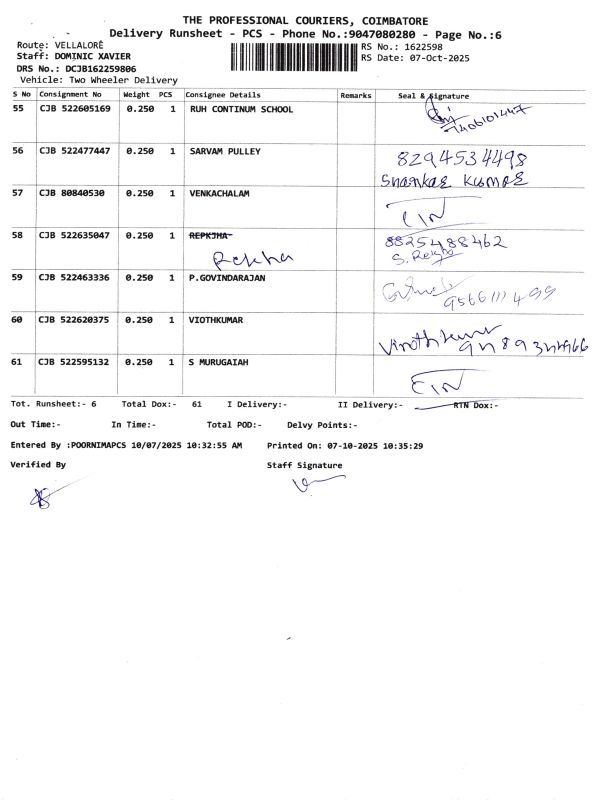 THE PROFESSIONAL COURIERS, COIMBATORE
Delivery Runsheet - PCS - Phone No.:9047080280 - Page No.:6
Route: VELLALORE RS No.: 1622598
Staff: DOMINIC XAVIER RS Date: 07-Oct-2025
DRS No.: DCJB162259806
Vehicle: Two Wheeler Delivery
S No Consignment No Weight PCS Consignee Details Remarks Seal & Signature
55 CJB 522605169 0.250 1 RUH CONTINUM SCHOOL
7406101447
56 CJB 522477447 0.250 1 SARVAM PULLEY 8294534498
Shankar Kumar
57 CJB 80840530 0.250 1 VENKACHALAM
58 CJB 522635047 0.250 1 REPKJHA 8825488462
Rekha S. Rekha
59 CJB 522463336 0.250 1 P.GOVINDARAJAN
9566111499
60 CJB 522620375 0.250 1 VIOTHKUMAR
Vinothkumar
61 CJB 522595132 0.250 1 S MURUGAIAH
Tot. Runsheet:- 6 Total Dox:- 61 I Delivery:- II Delivery:- RTN Dox:-
Out Time:- In Time:- Total POD:- Delvy Points:-
Entered By :POORNIMAPCS 10/07/2025 10:32:55 AM Printed On: 07-10-2025 10:35:29
Verified By Staff Signature